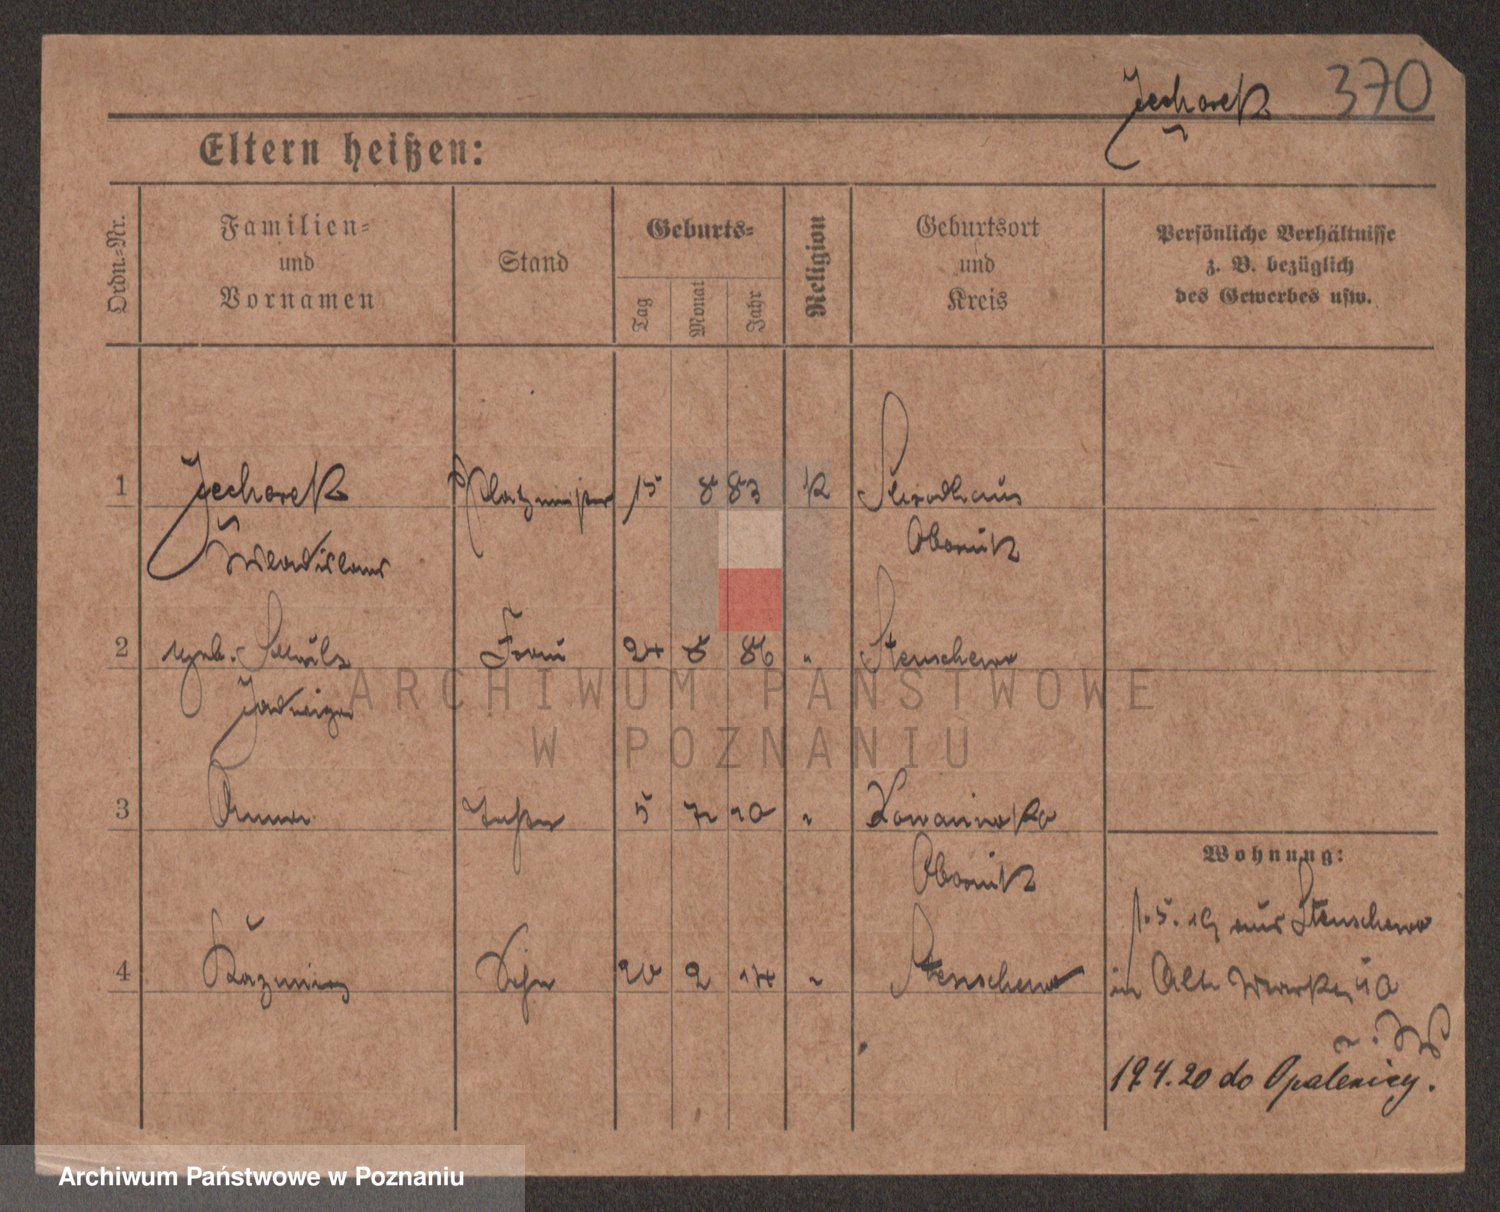 Jechorek 370
Eltern heißen:
Ordn.-Nr.
Familien-
und
Vornamen
Stand
Geburts-
Tag
Monat
Jahr
Religion
Geburtsort
und
Kreis
Persönliche Verhältnisse
z. B. bezüglich
des Gewerbes usw.
1 Jechorek 15 8 83 K
Wladislaus Obornik
2 geb. Schulz Frau 24 8 86 " Stenschewo
Jadwiga
3 Anna 5 7 10 " Kowanowko
Obornik
Wohnung:
1.5.19 aus Stenschewo
4 Kazimir 20 2 14 " Stenschewo
in Alter Markt
19.4.20 do Opalenicy.
ARCHIWUM PAŃSTWOWE
W POZNANIU
Archiwum Państwowe w Poznaniu